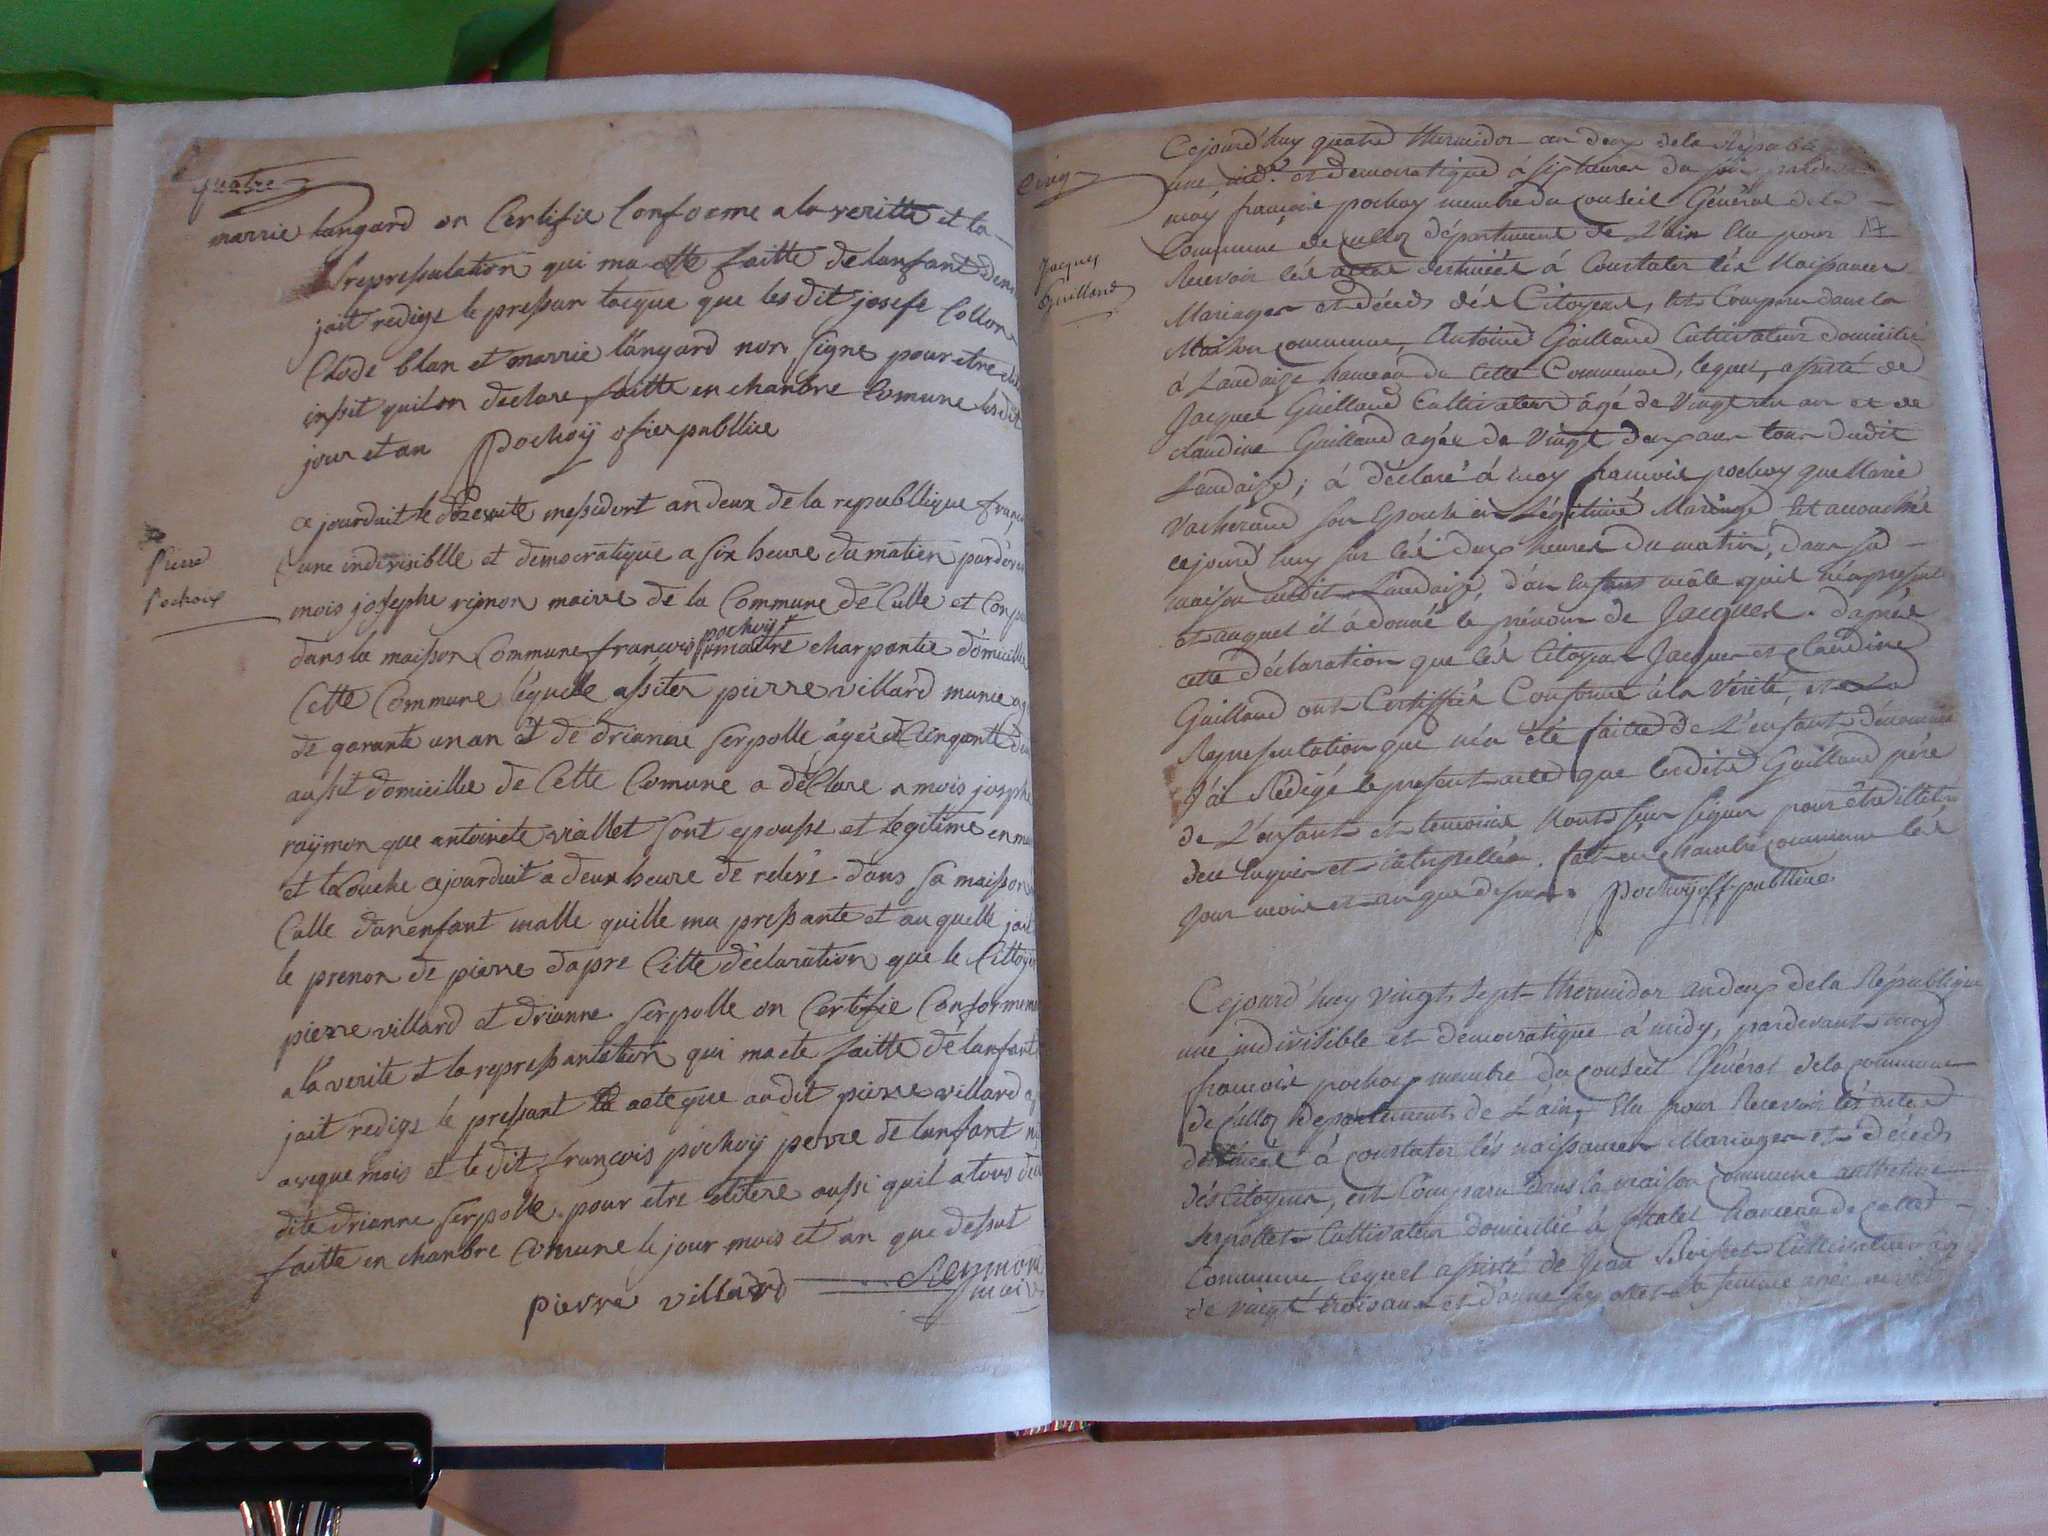 quatre
marrie langard on Certifie Conforme a la veritte et la
represulation qui ma ette faitte de lanfant denn
jait redige le pressan tacque que les dit josefe Collon
Clode blan et marrie langard non Signe pour etre
inssit quilon declare faitte en chanbre Comune les dit
jour et an pochoÿ ofier publlice
Pierre
Pochoix
ce jourduit le messidort an deux de la republlique franc
une indivisiblle et democratique a six heure du matien pardev
mois josephe rignon maire de la Commune de Culle et Conp
pochoij
dans la maisson Commune francois maittre charpantie domicille
Cette Commune lequelle assiter pierre villard munie ag
de qarante un an et de drianne serpolle agée de Cinqante
aussit domicillie de Cette Comune a declare a mois josephe
raÿmon que antoinete viallet sont epousse et legitime en ma
et acouche cejourduit a deux heure de relevé dans sa maisson
Culle dunenfant malle quille ma pressante et au quelle jait
le prenon de pierre dapre Citte déclaration que le Cittoye
pierre villard et drianne serpolle on Certifie Conformeme
a la verite et la repressantation qui ma ete faitte de lanfant
jait redige le pressant acte que audit pierre villard a
aveque mois et le dit françois pochoij perre de lanfant n
dite drianne serpolle pour etre elitere aussi quil atous
faitte en chanbre Comune le jour mois et an que dessut
pierre villard Reymon
maire
cinq
17
Cejourd'huy quatre thermidor an deux de la Répub
une, indle et democratique à six heures du soir pardev
moy françois pochoy membre du conseil Général de la
Commune de culloz département de L'ain Elu pour
Recevoir les actes destinées à Constater les Naissances
Jacques
Guilland
Mariages et décès des Citoyens, est Comparu dans la
Maison commune, Antoine Guilland Cultivateur domicilié
à Landaize hameau de cette Commune, lequel, assisté de
Jacques Guilland Cultivateur âgé de Vingt un an et de
claudine Guilland agée de Vingt deux ans tous dudit
Landaize; à déclaré à moy francois pochoy que Marie
Vacherand son Epouse en Légitime Mariage, est accouchée
cejourd'huy sur les deux heures du matin, dans sa
maison audit Landaize, d'un Enfant mâle quil m'a présenté
et auquel il à donné le prénom de Jacques. d'après
cette déclaration que les Citoyens Jacques et Claudine
Guilland ont Certiffiés Conforme à la Vérité, et La
Représentation que m'a été faitte de L'enfant dénommé
J'ai Rédigé le présent acte que lesdits Guilland père
de L'enfant et temoins N'ont seu signer pour être illiteré
de ce Enquis et interpellés. fait en chambre commune les
Jour mois et an que dessus. pochoÿ off. publlice
Cejourd'huy vingt sept thermidor an deux de la République
une indivisible et démocratique à midy, pardevant moy
francois pochoy membre du conseil Général de la commune
de Culloz departement de L'ain, Elu pour Recevoir les actes
destinés à constater les naissances Mariages et décès
des Citoyens, est Comparu dans la maison commune anthelme
serpollet Cultivateur domicilié à hameau de cette
Commune lequel assisté de Jean Cultivateur
de vingt trois ans et d'anne Serpollet sa femme agée